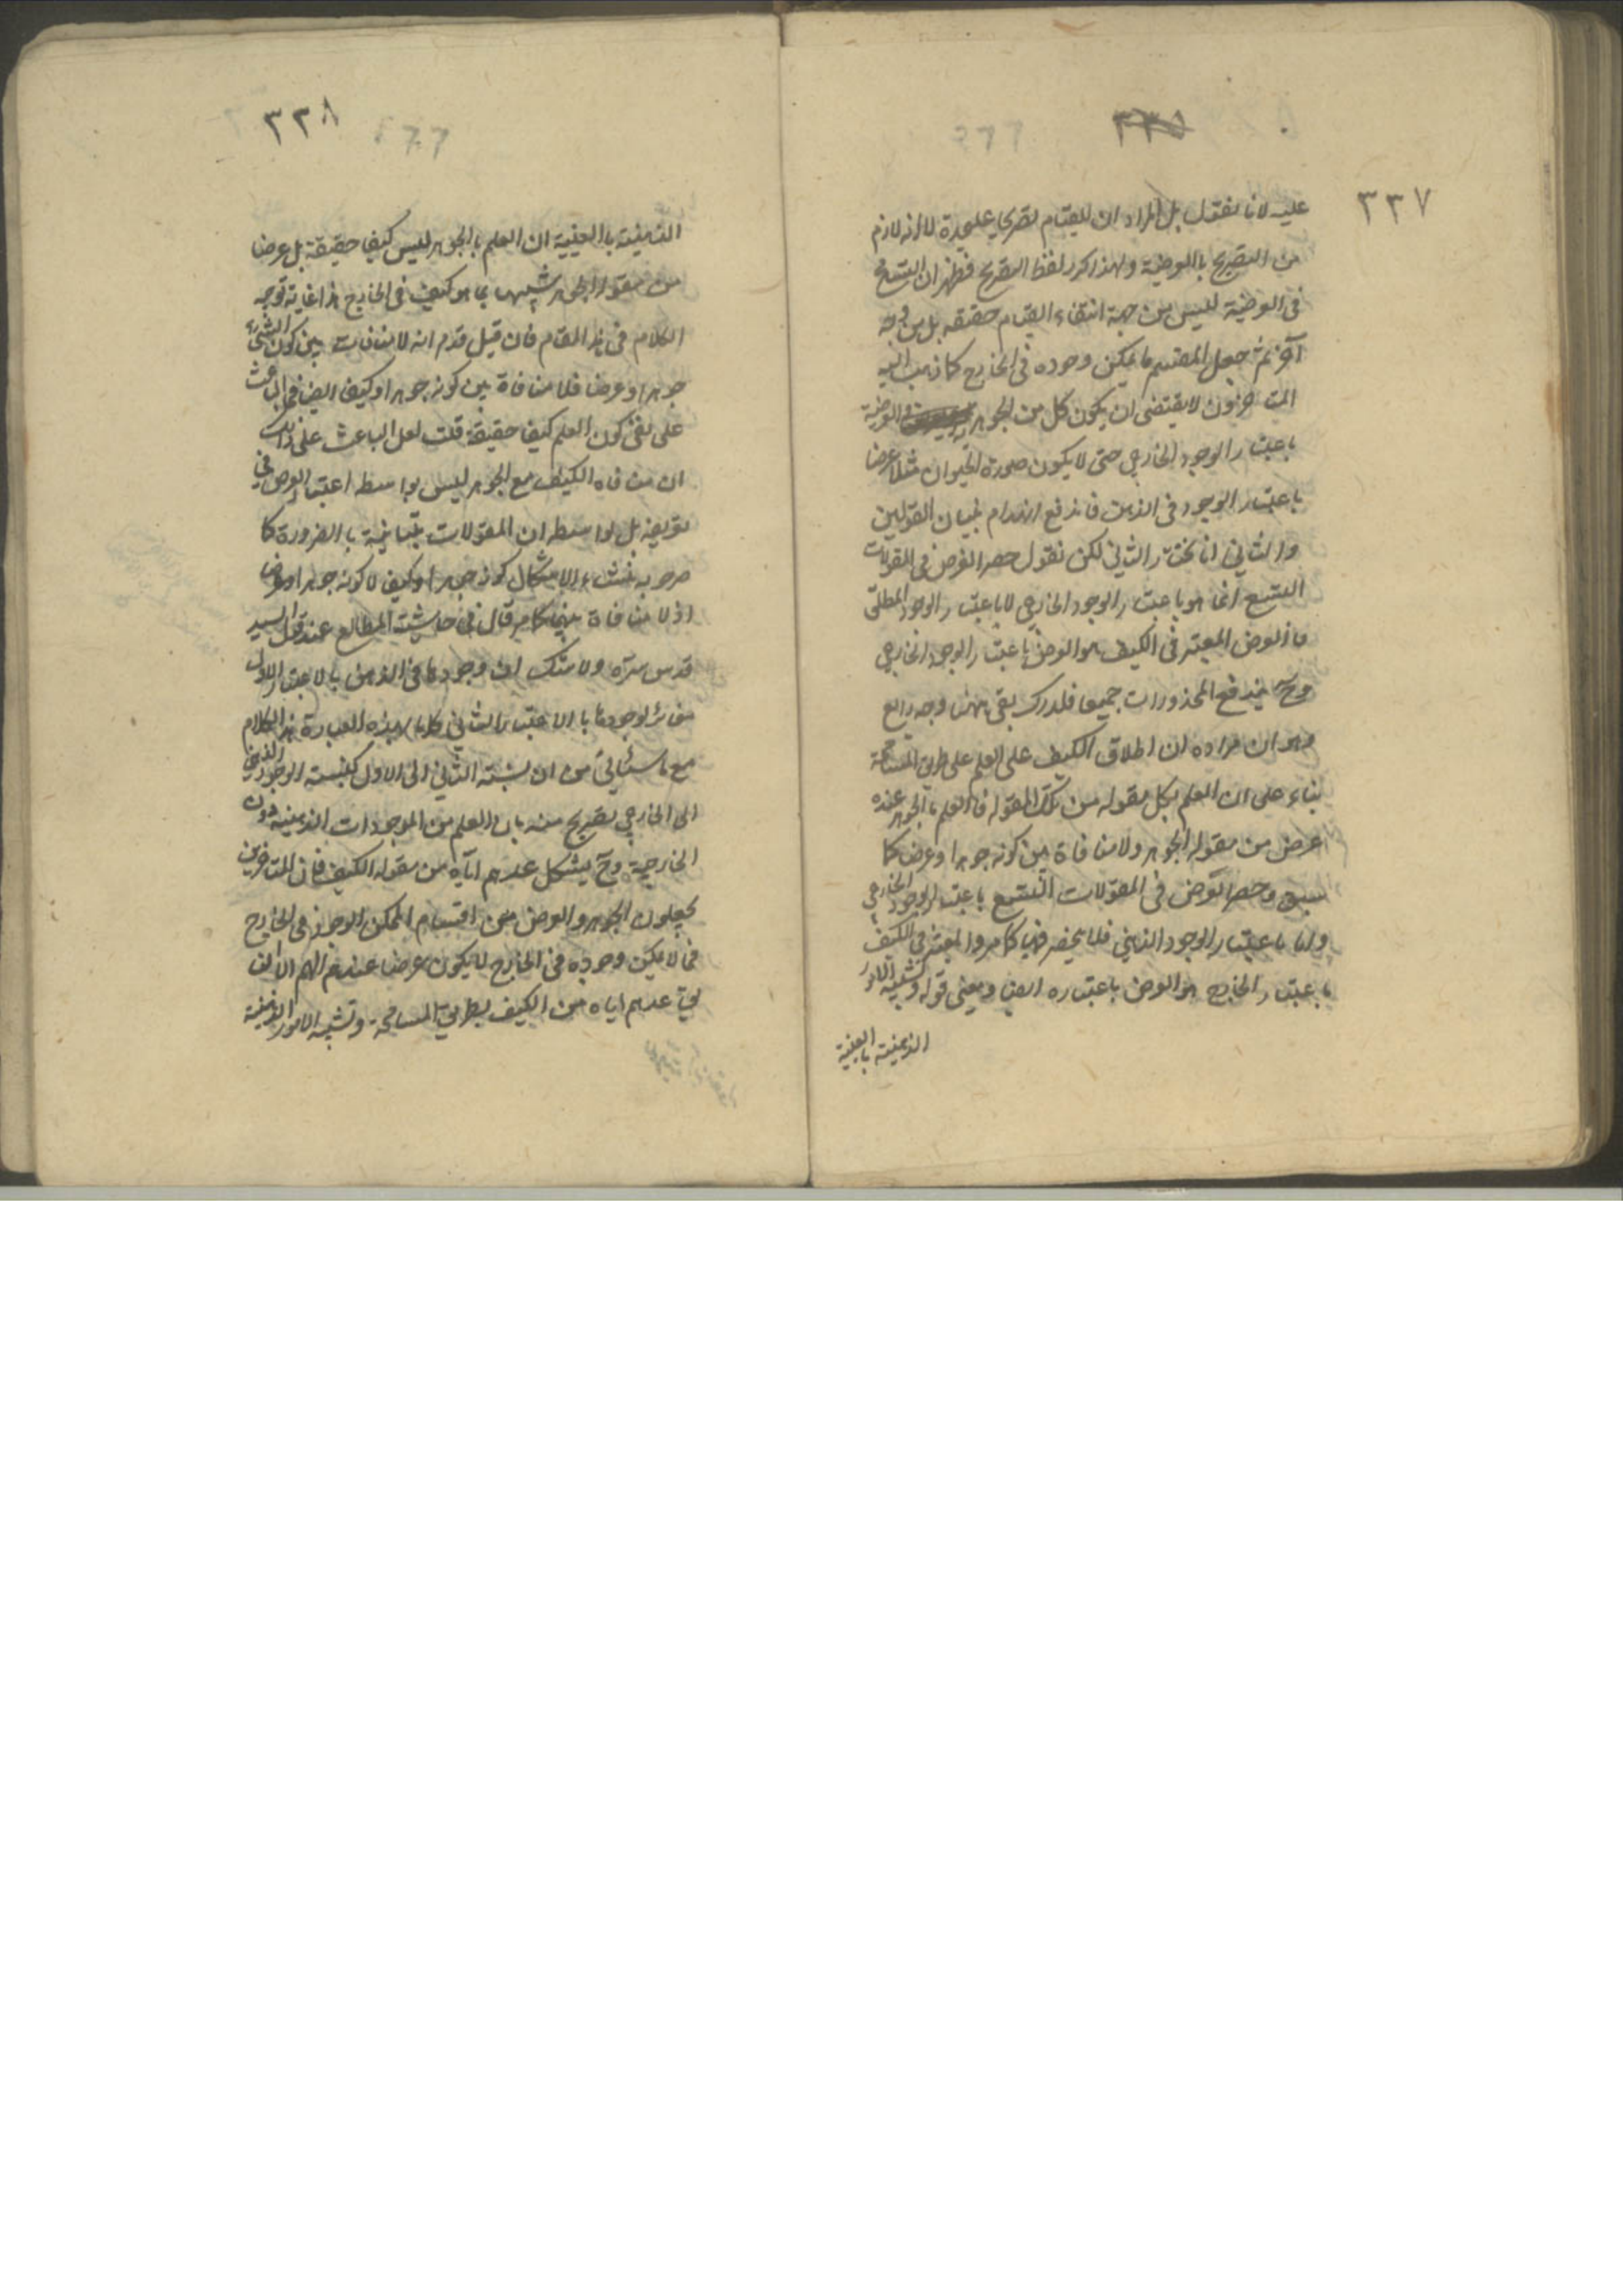 ٣٣٧
عليه لانا نقول بل المراد ان للقيام تصريحا عليحدة لا انه لازم
من التصريح باالعرضية ولهذا كرر لفظ التصريح فظهر ان التسامح
فى العرضية ليس من جهة انتفاء القيام حقيقه بل من وجه
آخر ثم جعل المقسم ما يمكن وجوده فى الخارج كما ذهب اليه
المتاخرون لا يقتضى ان يكون كل من الجوهر والعرضية
باعتبار الوجود الخارجي حتى لا يكون صورة الحيوان مثلا عرضا
باعتبار الوجود فى الذهن فاندفع القولين
والثاني انا نختار الثاني لكن نقول حصر العرض فى المقولات
التسع انما هو باعتبار الوجود الخارجي لا باعتبار الوجود المطلق
فالعرض المعتبر فى الكيف هو العرض باعتبار الوجود الخارجي
وح يندفع المحذورات جميعا فلدرك بقى ههنا وجه رابع
وهو ان مراده ان اطلاق الكيف على العلم على طريق المسامحة
بناء على ان العلم بكل مقوله من تلك المقوله فالعلم بالجوهر عنده
عرض من مقوله الجوهر ولا منافاة بين كونه جوهرا وعرض كما
سبق وحصر العرض فى المقولات التسع باعتبار الوجود الخارجي
واما باعتبار الوجود الذهني فلا ينحصر فيها كما مر والمعتبر فى الكيف
باعتبار الخارج هو العرض باعتباره ايضا ومعنى قوله وتشبيه الامور
الذهنية بالعينية
٣٣٨
الذهنية باالعينية ان العلم باالجوهر ليس كيفا حقيقة بل عرضا
من مقولة الجوهر شبيها بما هو كيف فى الخارج هذا غاية توجيه
الكلام فى هذا المقام فان قيل قدم انه لا منافات بين كون الشئ
جوهرا وعرضا فلا منافاة بين كونه جوهرا وكيفا ايضا فما الباعث
على نفى كون العلم كيفا حقيقة قلت لعل الباعث على ذلك
ان منافاه الكيف مع الجوهر ليس بواسطه اعتبار العرض في
تعريفه بل بواسطه ان المقولات متباينة باالضرورة كما
صرحوا به فمنشاء الاشكال كونه جوهرا وكيفا لا كونه جوهرا وعرضا
اذ لا منافاة بينهما كما مر قال فى حاشية المطالع عند قول السيد
قدس سره ولا شك ان وجودها فى الذهن بالاعتبار الاول
مغائر لوجودها باالاعتبار الثاني كلاما بهذه العبارة هذا الكلام
مع ما سيأتي من ان نسبته الثاني الى الاول كنسبته الوجود الذهني
الى الخارجي تصريح منه بان العلم من الموجودات الذهنية دون
الخارجية وح يشكل عدهم اياه من مقوله الكيف فان المتاخرين
يجعلون الجوهر والعرض من اقسام الممكن الوجود فى الخارج
فما لا يمكن وجوده فى الخارج لا يكون عرضا عندهم اللهم الا ان
يقال عدهم اياه من الكيف بطريق المسامحة وتشبيه الامور الذهنية